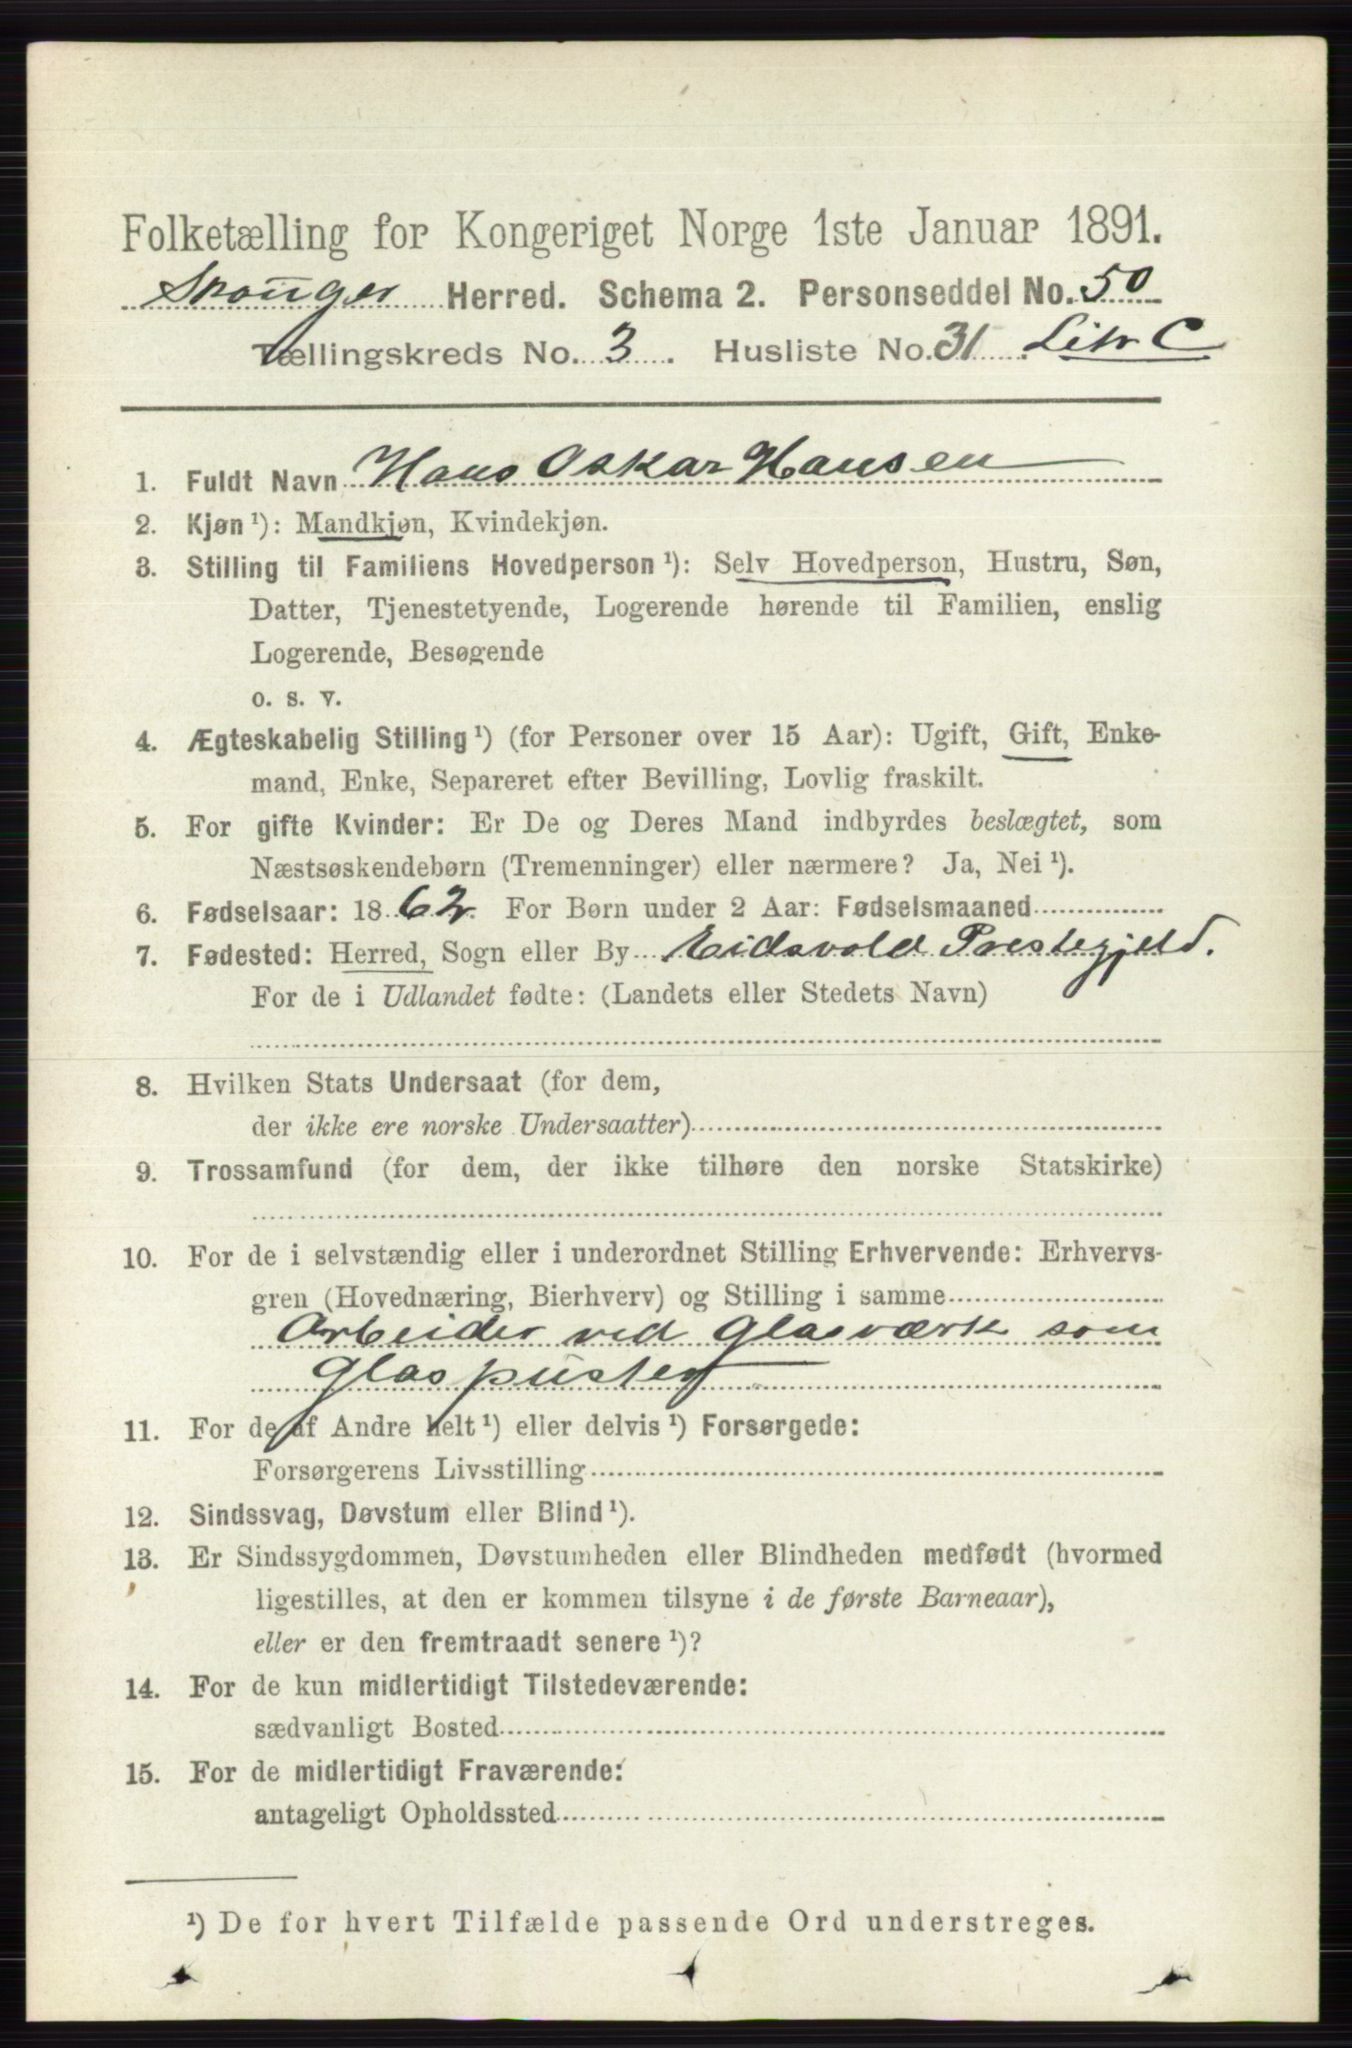 Folketælling for Kongeriget Norge 1ste Januar 1891.
Skouger Herred. Schema 2. Personseddel No. 50
Tællingskreds No. 3. Husliste No. 31 Litr C
1. Fuldt Navn Hans Oskar Hansen
2. Kjøn ¹): Mandkjøn, Kvindekjøn.
3. Stilling til Familiens Hovedperson ¹): Selv Hovedperson, Hustru, Søn,
Datter, Tjenestetyende, Logerende hørende til Familien, enslig
Logerende, Besøgende
o. s. v.
4. Ægteskabelig Stilling ¹) (for Personer over 15 Aar): Ugift, Gift, Enke-
mand, Enke, Separeret efter Bevilling, Lovlig fraskilt.
5. For gifte Kvinder: Er De og Deres Mand indbyrdes beslægtet, som
Næstsøskendebørn (Tremenninger) eller nærmere? Ja, Nei ¹).
6. Fødselsaar: 1862. For Børn under 2 Aar: Fødselsmaaned
7. Fødested: Herred, Sogn eller By Eidsvold Prestegjeld.
For de i Udlandet fødte: (Landets eller Stedets Navn)
8. Hvilken Stats Undersaat (for dem,
der ikke ere norske Undersaatter)
9. Trossamfund (for dem, der ikke tilhøre den norske Statskirke)
10. For de i selvstændig eller i underordnet Stilling Erhvervende: Erhvervs-
gren (Hovednæring, Bierhverv) og Stilling i samme
Arbeider ved Glasværk som
Glaspuster
11. For de af Andre helt ¹) eller delvis ¹) Forsørgede:
Forsørgerens Livsstilling
12. Sindssvag, Døvstum eller Blind ¹).
13. Er Sindssygdommen, Døvstumheden eller Blindheden medfødt (hvormed
ligestilles, at den er kommen tilsyne i de første Barneaar),
eller er den fremtraadt senere ¹)?
14. For de kun midlertidigt Tilstedeværende:
sædvanligt Bosted
15. For de midlertidigt Fraværende:
antageligt Opholdssted
¹) De for hvert Tilfælde passende Ord understreges.